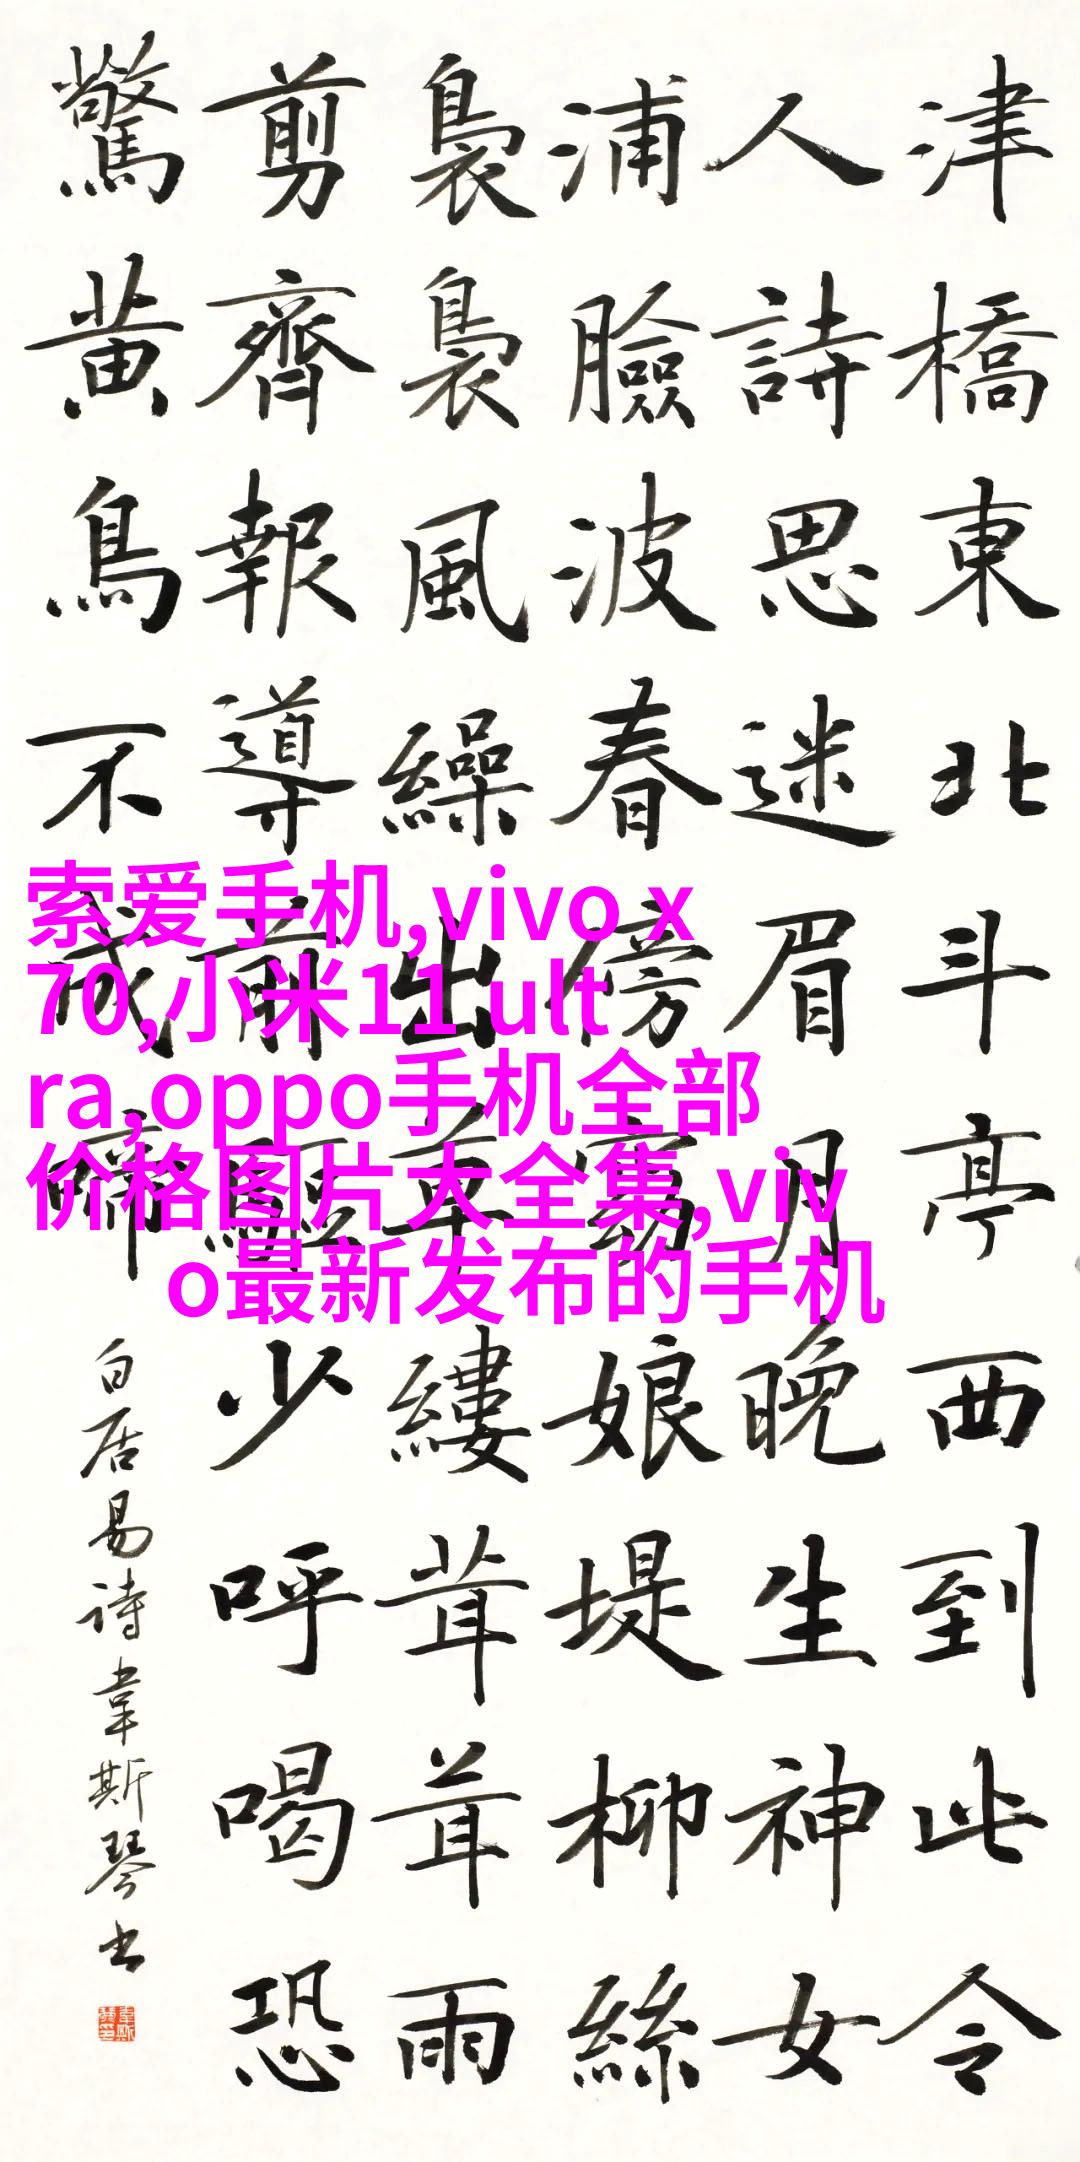 津橋東北斗亭西到此令
人詩思迷眉月晚生神女
浦臉波春傍窈娘堤柳絲
裊裊風繰出草縷茸茸雨
剪齊報導前驅少呼喝恐
驚黃鳥不成啼
白居易诗韋斯琴书
索爱手机,vivo x
70,小米11 ult
ra,oppo手机全部
价格图片大全集,viv
o最新发布的手机